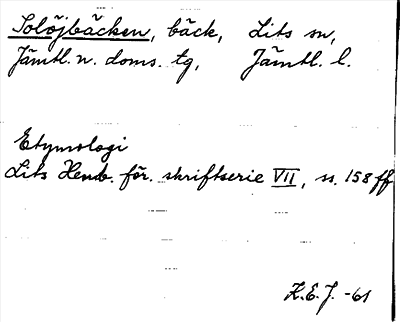 Solöjbäcken, bäck, Lits sn,
Jämtl. n. doms. tg, Jämtl. l.
Etymologi
Lits Hemb. för. skriftserie VII, ss. 158 ff
K.E.J. -61